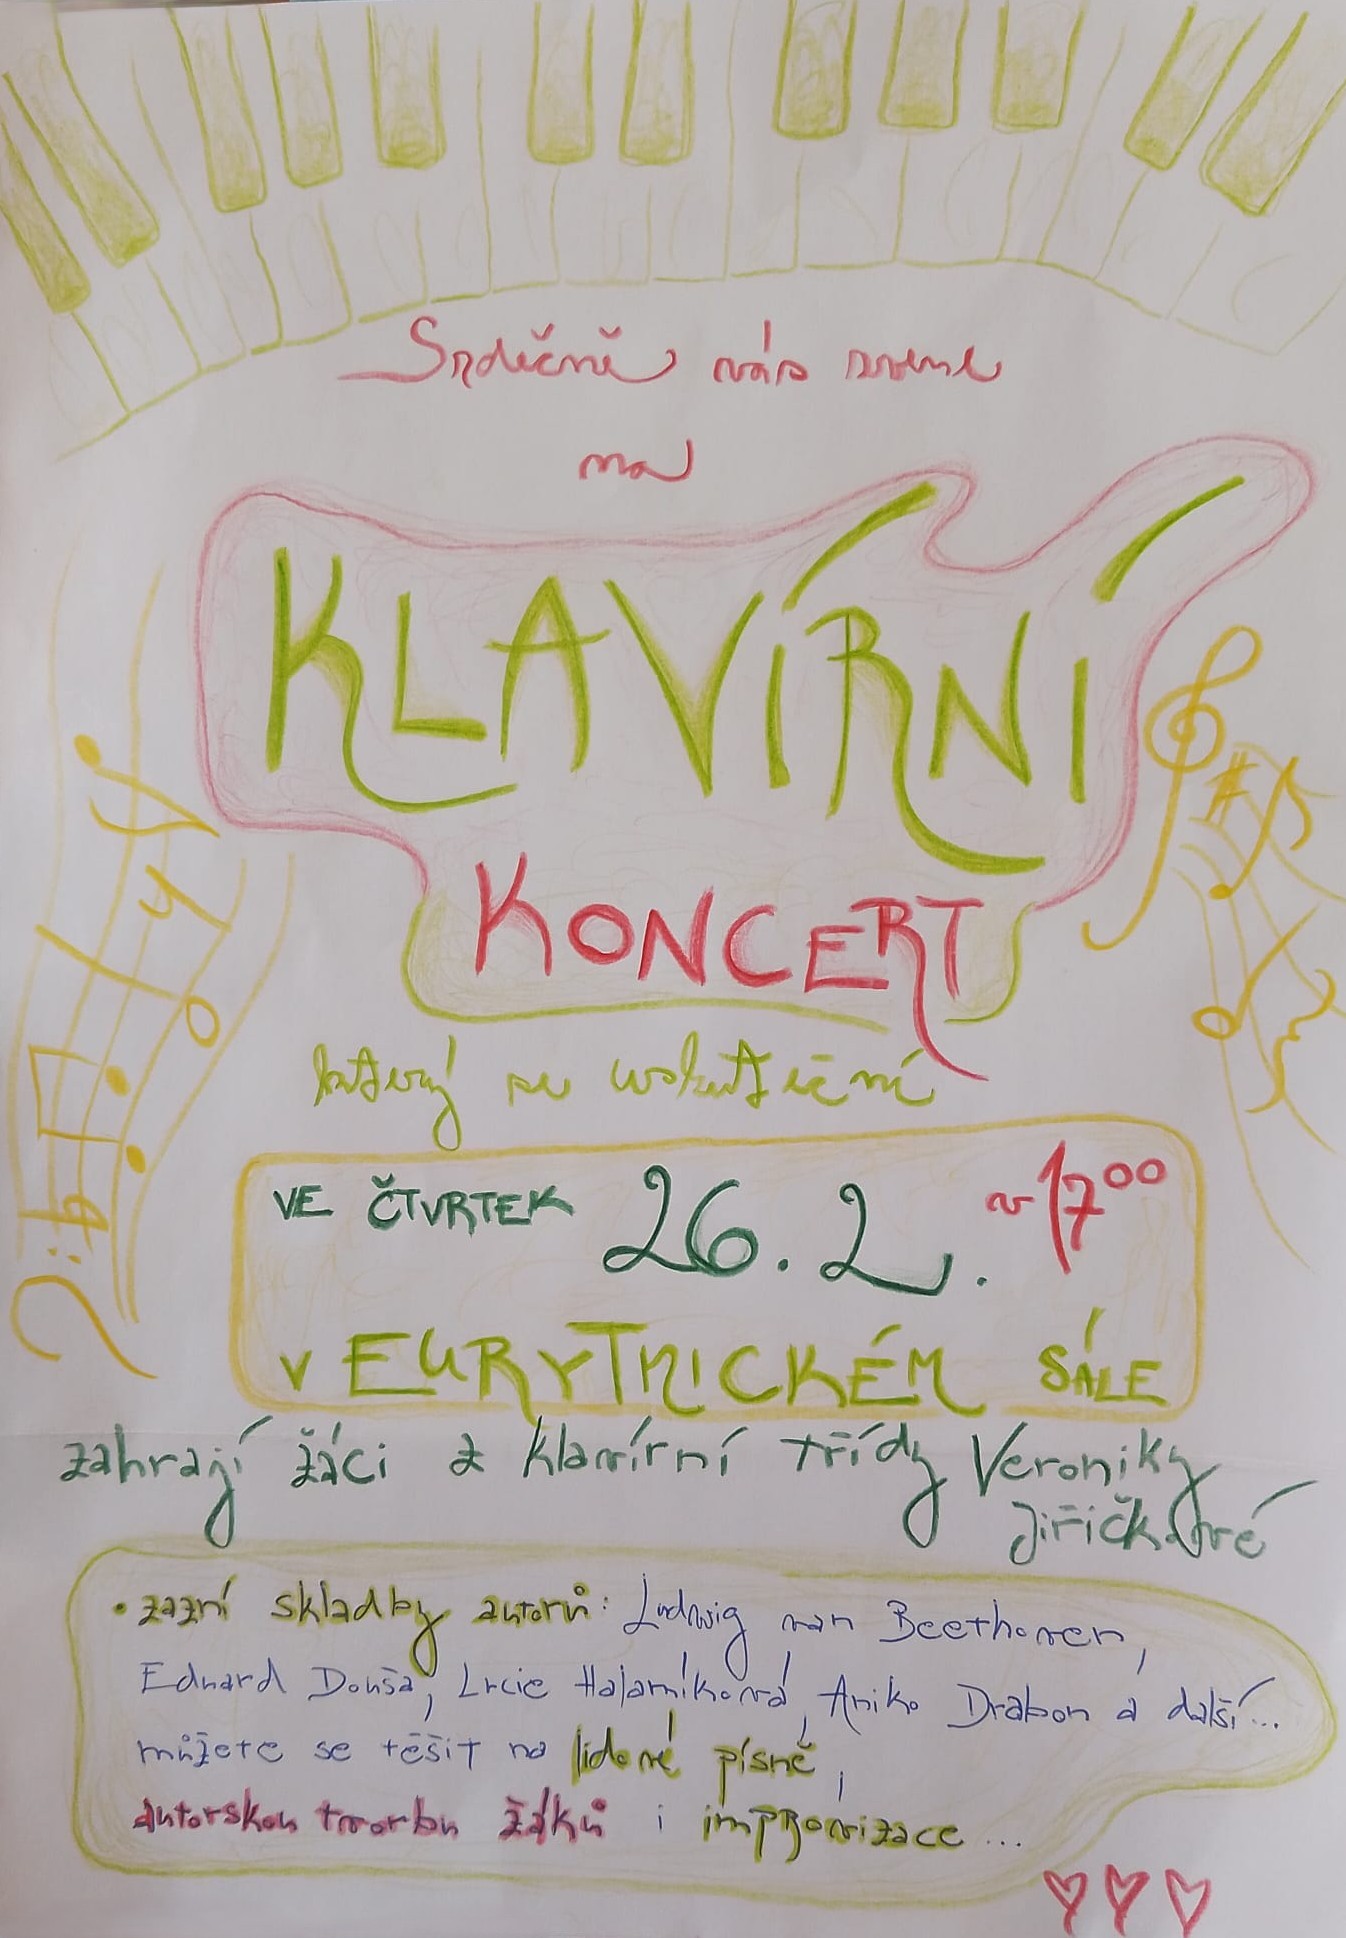 Srdečně vás zveme
na
KLAVÍRNÍ
KONCERT
který se uskuteční
VE ČTVRTEK 26. 2. v 17⁰⁰
V EURYTMICKÉM SÁLE
zahrají žáci z klavírní třídy Veroniky
Jiřičkové
• zazní skladby autorů: Ludwig van Beethoven,
Eduard Douša, Lucie Halamíková, Aniko Drabon a další...
můžete se těšit na lidové písně,
autorskou tvorbu žáků i improvizace...